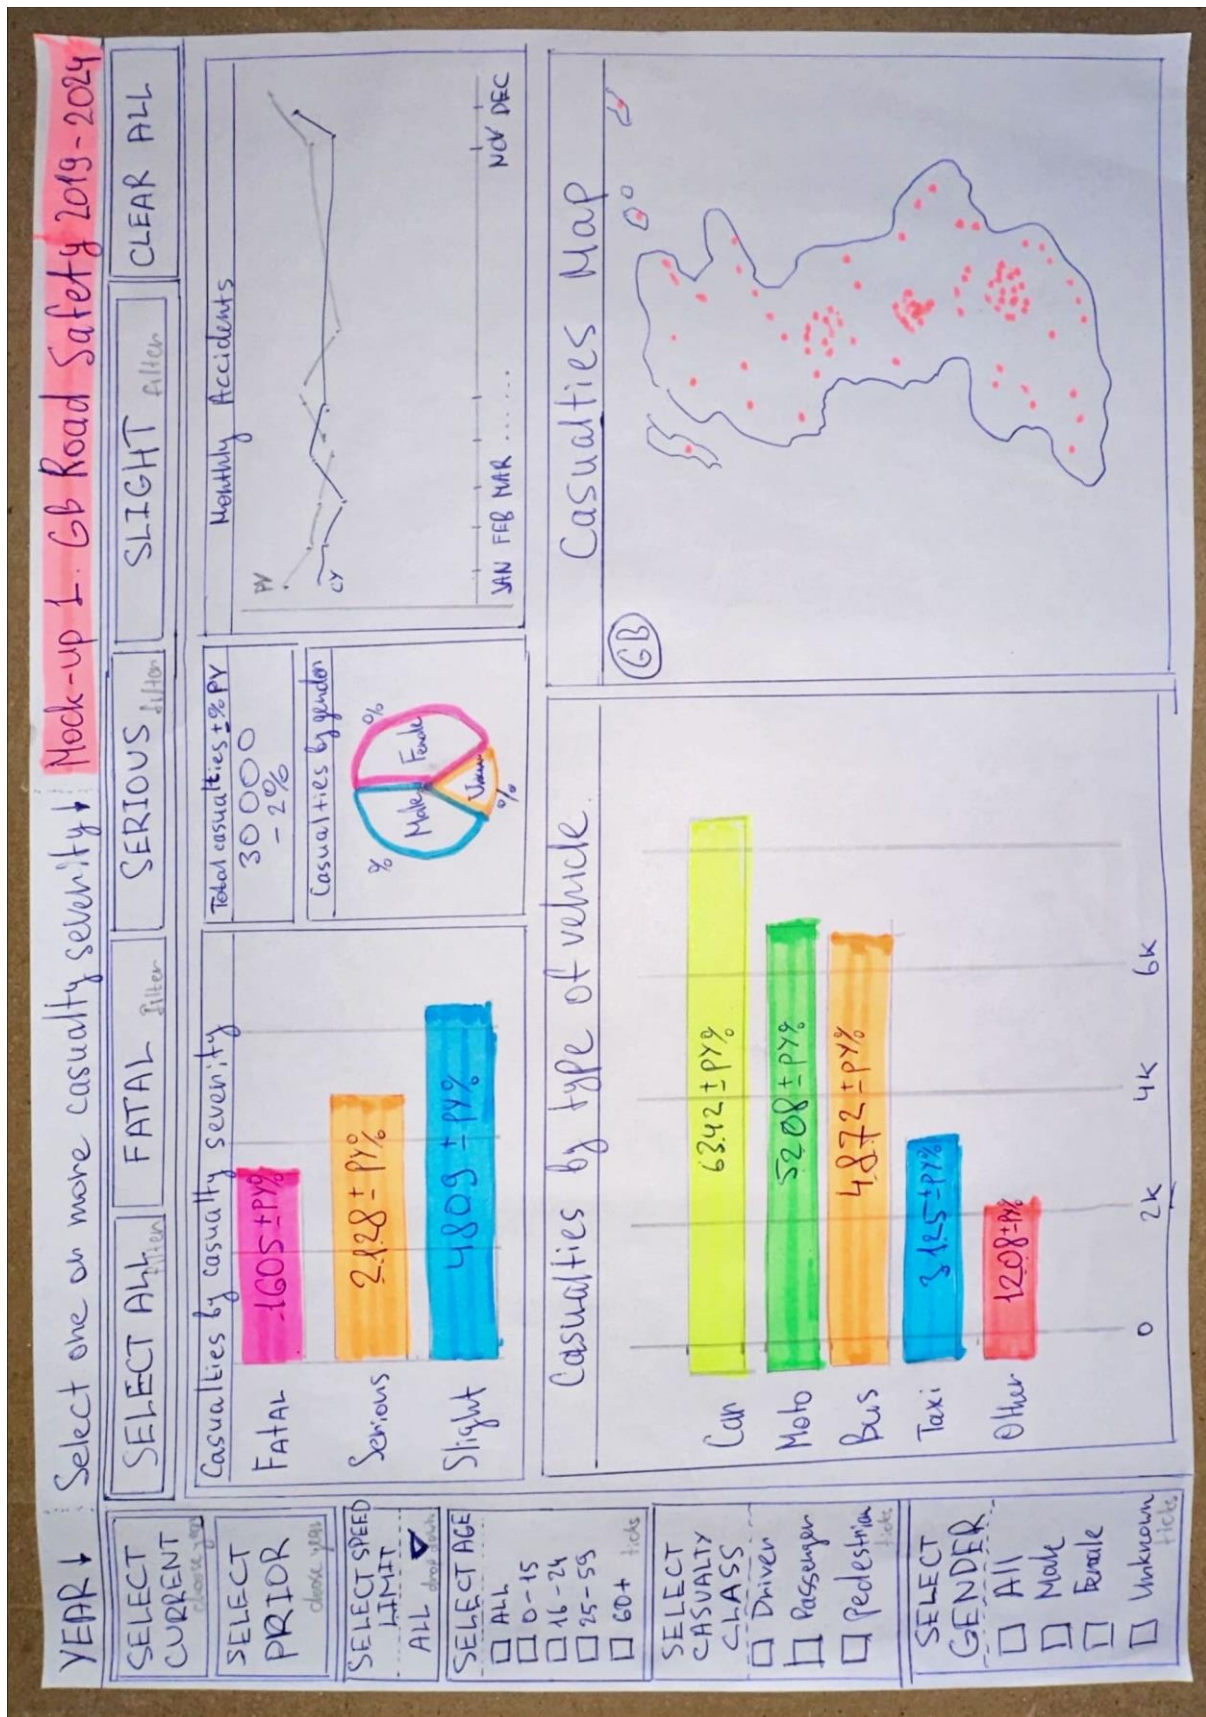 YEAR ↓
Select one or more casualty severity ↓
Mock-up 1. GB Road Safety 2019-2024
SELECT CURRENT
choose year
SELECT PRIOR
choose year
SELECT SPEED LIMIT
ALL
drop down
SELECT AGE
ALL
0-15
16-24
25-59
60+
ticks
SELECT CASUALTY CLASS
Driver
Passenger
Pedestrian
ticks
SELECT GENDER
All
Male
Female
Unknown
ticks
SELECT ALL
filter
FATAL
filter
SERIOUS
filter
SLIGHT
filter
CLEAR ALL
Casualties by casualty severity
FATAL
1605 ± PY%
Serious
2128 ± PY%
Slight
4809 ± PY%
Total casualties ± % PY
30000
- 2%
Casualties by gender
%
Male
Female
%
%
Monthly Accidents
PY
CY
JAN FEB MAR ....... NOV DEC
Casualties by type of vehicle.
Car
6342 ± PY%
Moto
5208 ± PY%
Bus
4872 ± PY%
Taxi
3125 ± PY%
Other
1208 ± PY%
0
2K
4K
6K
Casualties Map
GB